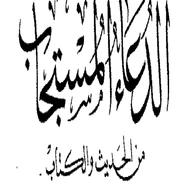 الدُّعَاءُ المُسْتَجَابُ
من الحديث والكتاب